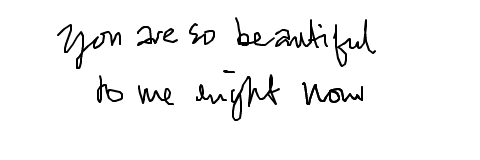 You are so beautiful
to me right now